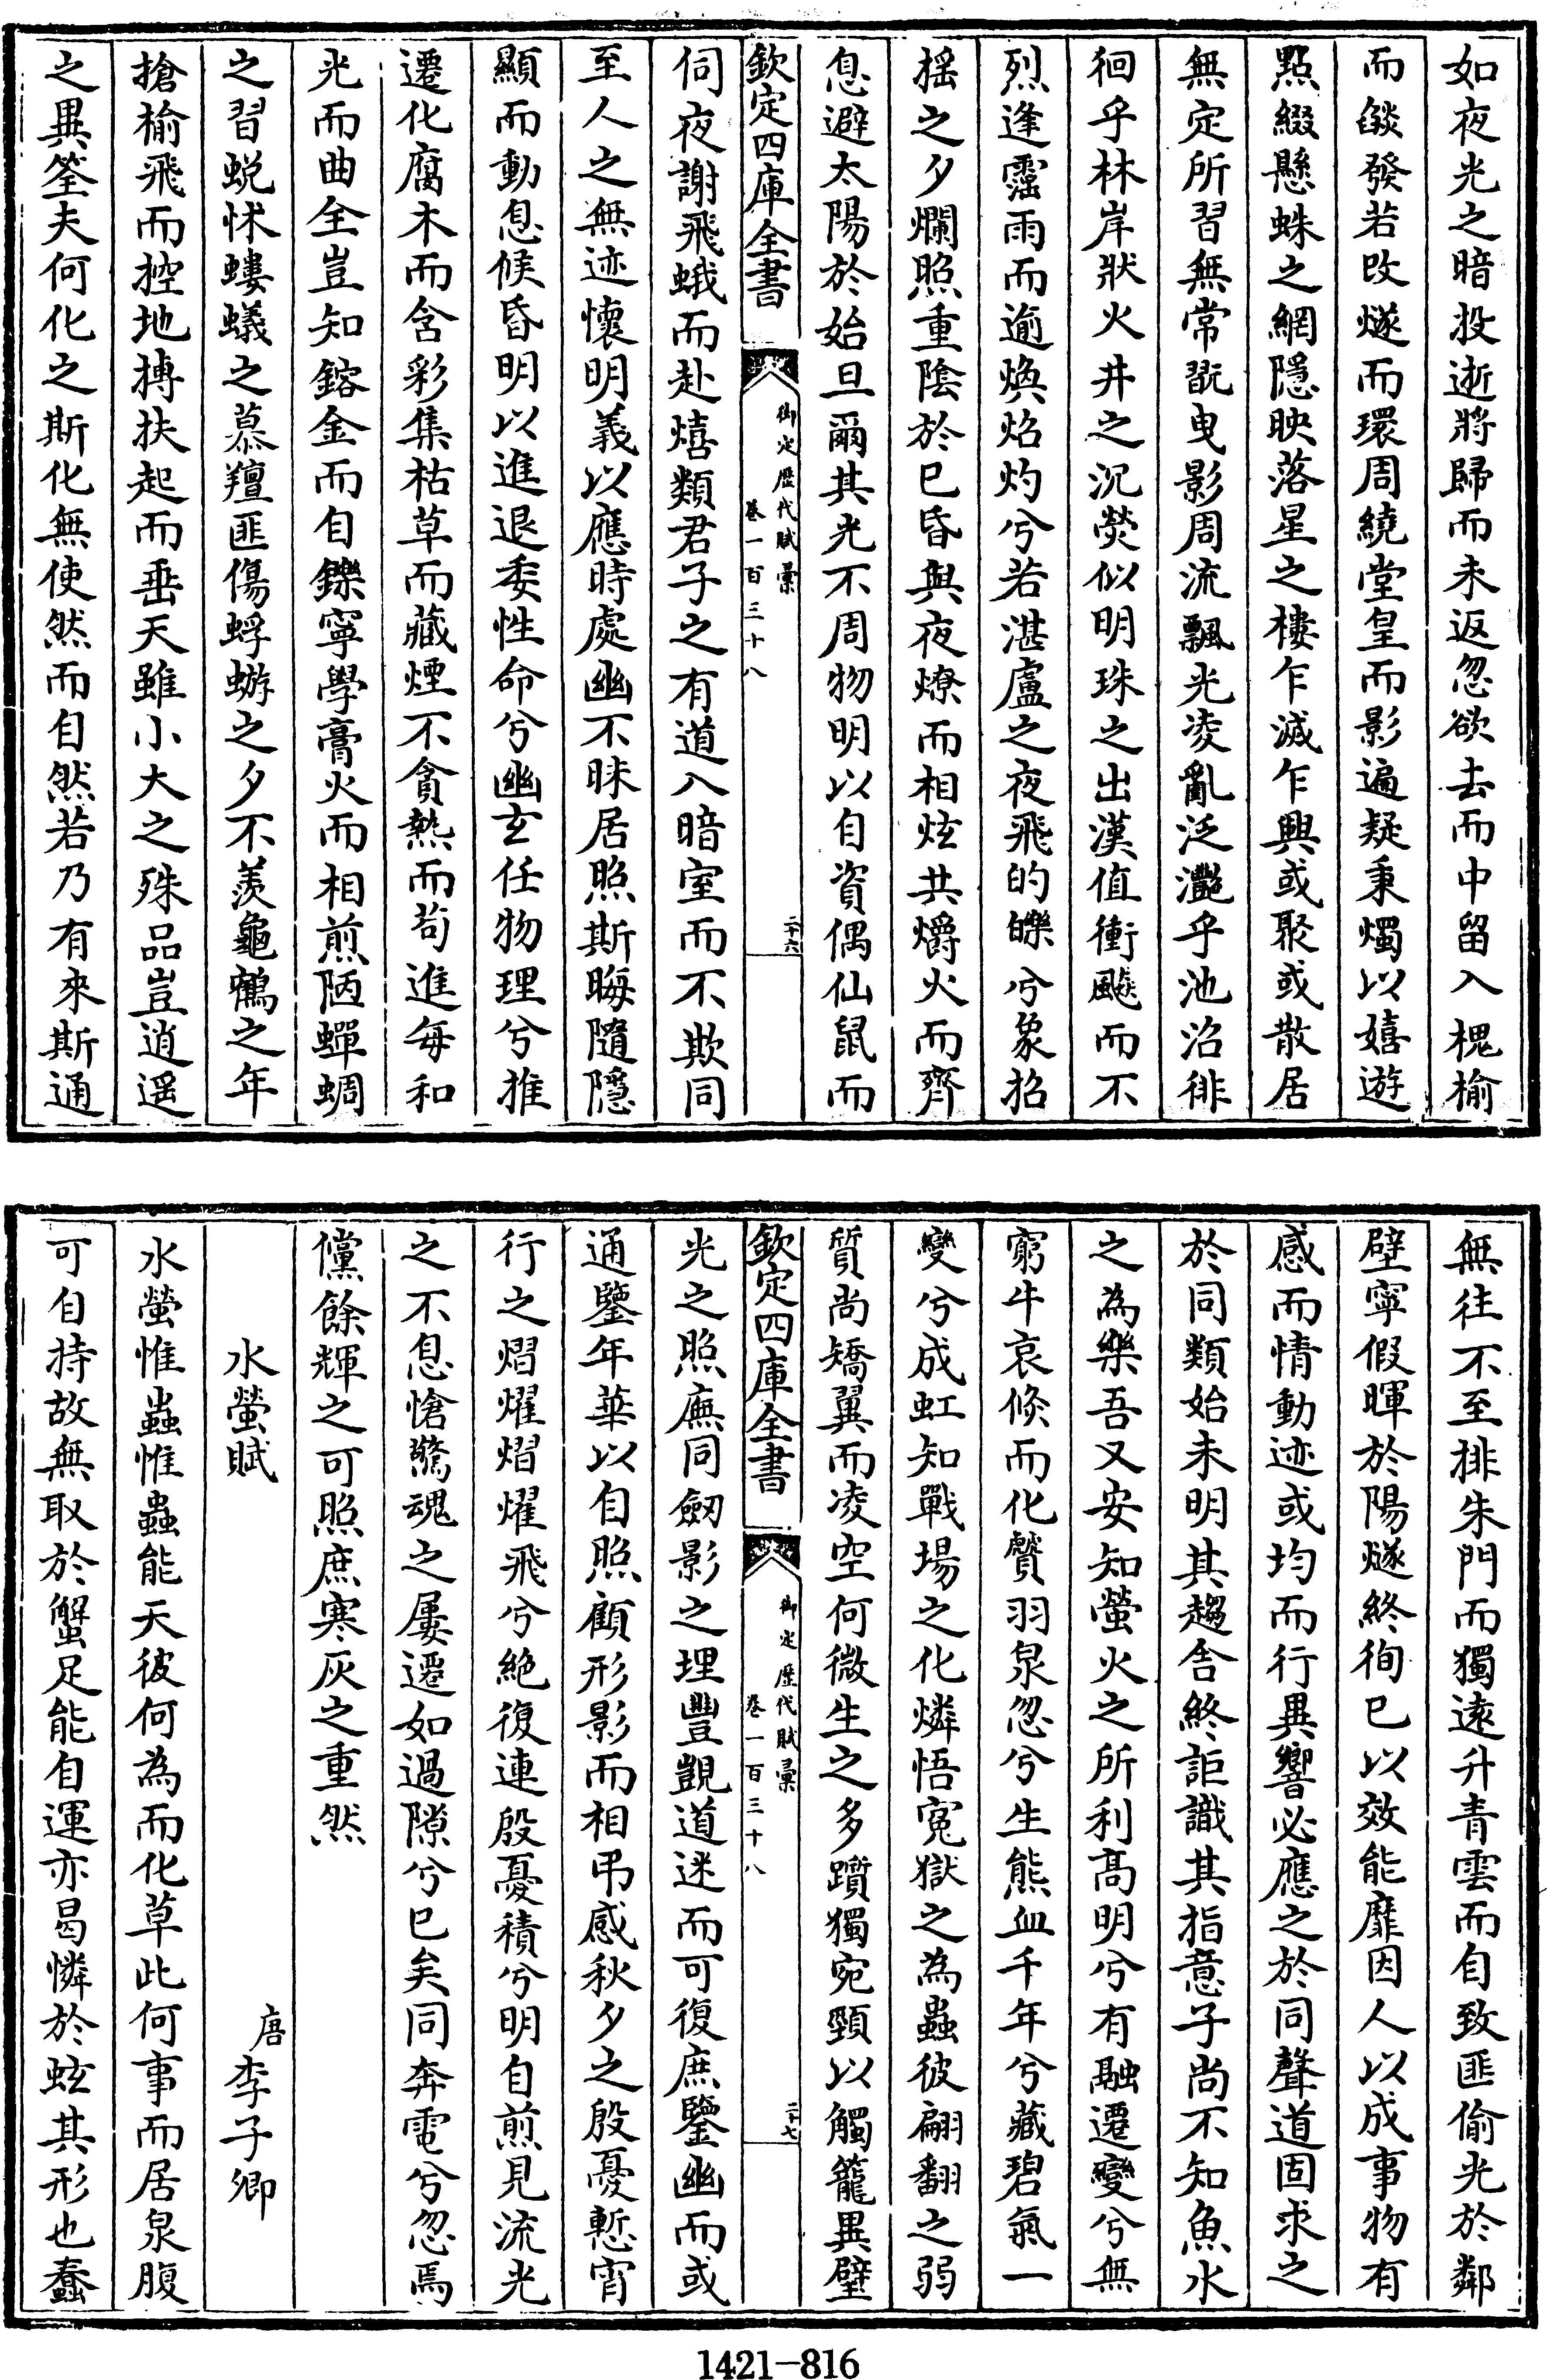 如夜光之暗投逝將歸而未返忽欲去而中留入槐榆
而燄發若改燧而環周繞堂皇而影遍疑秉燭以嬉遊
點綴懸蛛之網隱映落星之樓乍滅乍興或聚或散居
無定所習無常翫曳影周流飄光凌亂泛灧乎池沼徘
徊乎林岸狀火井之沉熒似明珠之出漢值衝飈而不
烈逢霪雨而逾煥焰灼兮若湛盧之夜飛的皪兮象招
搖之夕爛照重陰於已昏與夜燎而相炫共爝火而齊
息避太陽於始旦爾其光不周物明以自資偶仙鼠而
欽定四庫全書
御定歷代賦彙
卷一百三十八
二十六
伺夜謝飛蛾而赴熺類君子之有道入暗室而不欺同
至人之無迹懷明義以應時處幽不昧居照斯晦隨隱
顯而動息候昏明以進退委性命兮幽玄任物理兮推
遷化腐木而含彩集枯草而藏煙不貪熱而茍進每和
光而曲全豈知鎔金而自鑠寧學膏火而相煎陋蟬蜩
之習蛻怵螻蟻之慕羶匪傷蜉蝣之夕不羨龜鶴之年
搶榆飛而控地摶扶起而垂天雖小大之殊品豈逍遥
之異筌夫何化之斯化無使然而自然若乃有來斯通
無往不至排朱門而獨遠升青雲而自致匪偷光於鄰
壁寧假暉於陽燧終徇已以效能靡因人以成事物有
感而情動迹或均而行異響必應之於同聲道固求之
於同類始未明其趨舍終詎識其指意子尚不知魚水
之為樂吾又安知螢火之所利高明兮有融遷變兮無
窮牛哀倏而化贙羽泉忽兮生熊血千年兮藏碧氣一
變兮成虹知戰場之化燐悟寃獄之為蟲彼翩翻之弱
質尚矯翼而凌空何微生之多躓獨宛頸以觸籠異壁
欽定四庫全書
御定歷代賦彙
卷一百三十八
二十七
光之照廡同劒影之埋豐覬道迷而可復庶鑒幽而或
通鑒年華以自照顧形影而相弔感秋夕之殷憂慙宵
行之熠燿熠燿飛兮絶復連殷憂積兮明自煎見流光
之不息愴驚魂之屢遷如過隙兮已矣同奔電兮忽焉
儻餘輝之可照庶寒灰之重然
水螢賦
唐李子卿
水螢惟蟲惟蟲能天彼何為而化草此何事而居泉腹
可自持故無取於蟹足能自運亦曷憐於蚿其形也蠢
1421-816